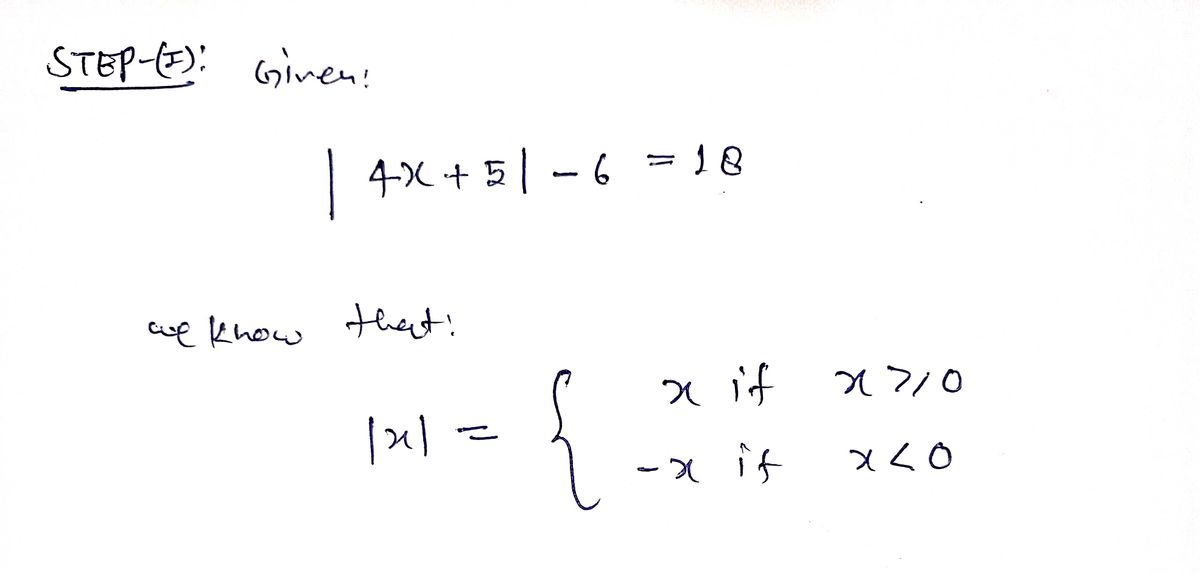 STEP-(I): Given:
| 4x + 5 | - 6 = 18
we know that:
|x| = { x if x ≥ 0
-x if x < 0